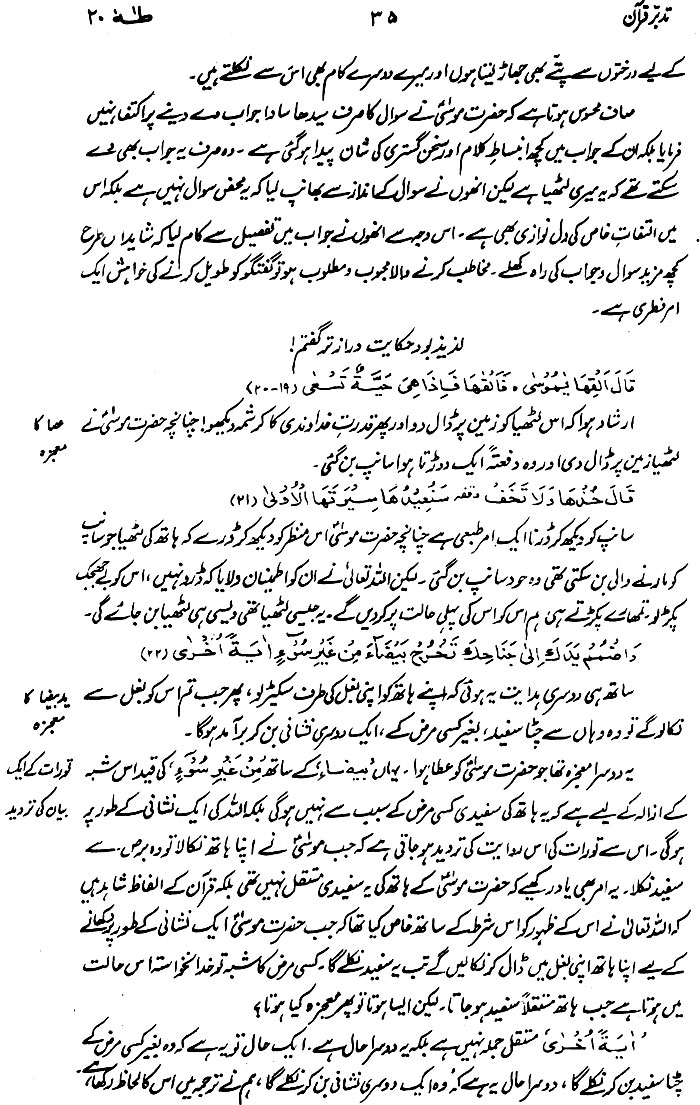 تدبرِ قرآن ۳۵ طٰهٰ ۲۰
کے لیے درختوں سے پتے بھی جھاڑ لیتا ہوں اور میرے دوسرے کام بھی اس سے نکلتے ہیں۔
صاف محسوس ہوتا ہے کہ حضرت موسیٰؑ نے سوال کا صرف سیدھا سادا جواب دے دینے پر اکتفا نہیں
فرمایا بلکہ ان کے جواب میں کچھ انبساطِ کلام اور سخن گستری کی شان پیدا ہو گئی ہے۔ وہ صرف یہ جواب بھی دے
سکتے تھے کہ یہ میری لٹھیا ہے لیکن انھوں نے سوال کے انداز سے بھانپ لیا کہ یہ محض سوال نہیں ہے بلکہ اس
میں التفاتِ خاص کی دل نوازی بھی ہے۔ اس وجہ سے انھوں نے جواب میں تفصیل سے کام لیا کہ شاید اس طرح
کچھ مزید سوال و جواب کی راہ کھلے۔ مخاطب کرنے والا محبوب و مطلوب ہو تو گفتگو کو طویل کرنے کی خواہش ایک
امر فطری ہے۔
لذیذ بود حکایت دراز تر گفتم!
قَالَ اَلْقِهَا يٰمُوْسٰى ہ فَاَلْقٰهَا فَاِذَا هِىَ حَيَّةٌ تَسْعٰى (۱۹-۲۰)
ارشاد ہوا کہ اس لٹھیا کو زمین پر ڈال دو اور پھر قدرتِ خداوندی کا کرشمہ دیکھو! چنانچہ حضرت موسیٰؑ نے
عصا کا
معجزہ
لٹھیا زمین پر ڈال دی اور وہ دفعتہً ایک دوڑتا ہوا سانپ بن گئی۔
قَالَ خُذْهَا وَلَا تَخَفْ وقفه سَنُعِيْدُهَا سِيْرَتَهَا الْاُوْلٰى (۲۱)
سانپ کو دیکھ کر ڈرنا ایک امر طبعی ہے چنانچہ حضرت موسیٰؑ اس منظر کو دیکھ کر ڈرے کہ ہاتھ کی لٹھیا جو سانپ
کو مارنے والی بن سکتی تھی وہ خود سانپ بن گئی۔ لیکن اللہ تعالیٰ نے ان کو اطمنان دلایا کہ ڈرو نہیں، اس کو بے جھجک
پکڑ لو، تمھارے پکڑتے ہی ہم اس کو اس کی پہلی حالت پر کر دیں گے۔ یہ جیسی لٹھیا تھی ویسی ہی لٹھیا بن جائے گی۔
وَاضْمُمْ يَدَكَ اِلٰى جَنَاحِكَ تَخْرُجْ بَيْضَآءَ مِنْ غَيْرِ سُوْٓءٍ اٰيَةً اُخْرٰى (۲۲)
ساتھ ہی دوسری ہدایت یہ ہوئی کہ اپنے ہاتھ کو اپنی بغل کی طرف سکیڑ لو، پھر جب تم اس کو بغل سے
یدِ بیضا کا
معجزہ
نکالو گے تو وہ وہاں سے چٹا سفید، بغیر کسی مرض کے، ایک دوسری نشانی بن کر برآمد ہوگا۔
یہ دوسرا معجزہ تھا جو حضرت موسیٰؑ کو عطا ہوا۔ یہاں 'بَيْضَاء' کے ساتھ 'مِنْ غَيْرِ سُوْٓءٍ' کی قید اس شبہ
تورات کے ایک
بیان کی تردید
کے ازالہ کے لیے ہے کہ یہ ہاتھ کی سفیدی کسی مرض کے سبب سے نہیں ہوگی بلکہ اللہ کی ایک نشانی کے طور پر
ہوگی۔ اس سے تورات کی اس روایت کی تردید ہو جاتی ہے کہ جب موسیٰؑ نے اپنا ہاتھ نکالا تو وہ برص سے
سفید نکلا۔ یہ امر بھی یاد رکھیے کہ حضرت موسیٰؑ کے ہاتھ کی یہ سفیدی مستقل نہیں تھی بلکہ قرآن کے الفاظ شاہد ہیں
کہ اللہ تعالیٰ نے اس کے ظہور کو اس شرط کے ساتھ خاص کیا تھا کہ جب حضرت موسیٰؑ ایک نشانی کے طور پر دکھانے
کے لیے اپنا ہاتھ اپنی بغل میں ڈال کر نکالیں گے تب یہ سفید نکلے گا۔ کسی مرض کا شبہ تو خدانخواستہ اس حالت
میں ہوتا ہے جب ہاتھ مستقلاً سفید ہو جاتا۔ لیکن ایسا ہوتا تو پھر معجزہ کیا ہوتا؟
'اٰيَةً اُخْرٰى' مستقل جملہ نہیں ہے بلکہ یہ دوسرا حال ہے۔ ایک حال تو یہ ہے کہ وہ بغیر کسی مرض کے
چٹا سفید بن کر نکلے گا، دوسرا حال یہ ہے کہ وہ ایک دوسری نشانی بن کر نکلے گا، ہم نے ترجمہ میں اس کا لحاظ رکھا ہے۔